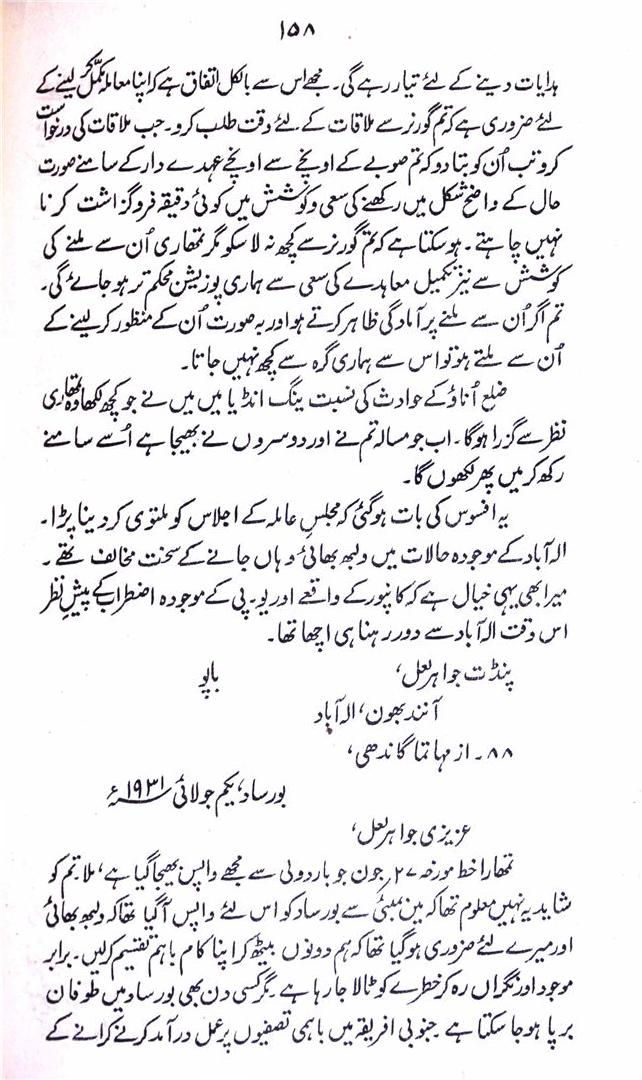 ۱۵۸
ہدایات دینے کے لئے تیار رہے گی۔ مجھے اس سے بالکل اتفاق ہے کہ اپنا معاملہ مکمل کر لینے کے
لئے ضروری ہے کہ تم گورنر سے ملاقات کے لئے وقت طلب کرو۔ جب ملاقات کی درخواست
کرو تب اُن کو بتا دو کہ تم صوبے کے اونچے سے اونچے عہدے دار کے سامنے صورت
حال کے واضح شکل میں رکھنے کی سعی و کوشش میں کوئی دقیقہ فروگزاشت کرنا
نہیں چاہتے۔ ہو سکتا ہے کہ تم گورنر سے کچھ نہ لا سکو مگر تمھاری اُن سے ملنے کی
کوشش سے نیز تکمیل معاہدے کی سعی سے ہماری پوزیشن محکم تر ہو جائے گی۔
تم اگر اُن سے ملنے پر آمادگی ظاہر کرتے ہو اور بہ صورت اُن کے منظور کر لینے کے
اُن سے ملتے ہو تو اس سے ہماری گرہ سے کچھ نہیں جاتا۔
ضلع اُناؤ کے حوادث کی نسبت ینگ انڈیا میں میں نے جو کچھ لکھا وہ تمھاری
نظر سے گزرا ہوگا۔ اب جو مسالہ تم نے اور دوسروں نے بھیجا ہے اُسے سامنے
رکھ کر میں پھر لکھوں گا۔
یہ افسوس کی بات ہو گئی کہ مجلسِ عاملہ کے اجلاس کو ملتوی کر دینا پڑا۔
الہ آباد کے موجودہ حالات میں ولبھ بھائی وہاں جانے کے سخت مخالف تھے۔
میرا بھی یہی خیال ہے کہ کانپور کے واقعے اور یو۔ پی کے موجودہ اضطراب کے پیشِ نظر
اس وقت الہ آباد سے دور رہنا ہی اچھا تھا۔
پنڈت جواہر لعل، باپو
آنند بھون، الہ آباد
۸۸۔ از مہاتما گاندھی،
بورساد، یکم جولائی ۱۹۳۱ء
عزیزی جواہر لعل،
تمھارا خط مورخہ ۲۷ جون جو باردولی سے مجھے واپس بھیجا گیا ہے، ملا۔ تم کو
شاید یہ نہیں معلوم تھا کہ میں بمبئی سے بورساد کو اس لئے واپس آ گیا تھا کہ ولبھ بھائی
اور میرے لئے ضروری ہو گیا تھا کہ ہم دونوں بیٹھ کر اپنا کام باہم تقسیم کر لیں۔ برابر
موجود اور نگراں رہ کر خطرے کو ٹالا جا رہا ہے۔ مگر کسی دن بھی بورساد میں طوفان
برپا ہو جا سکتا ہے۔ جنوبی افریقہ میں باہمی تصفیوں پر عمل در آمد کرنے کرانے کے